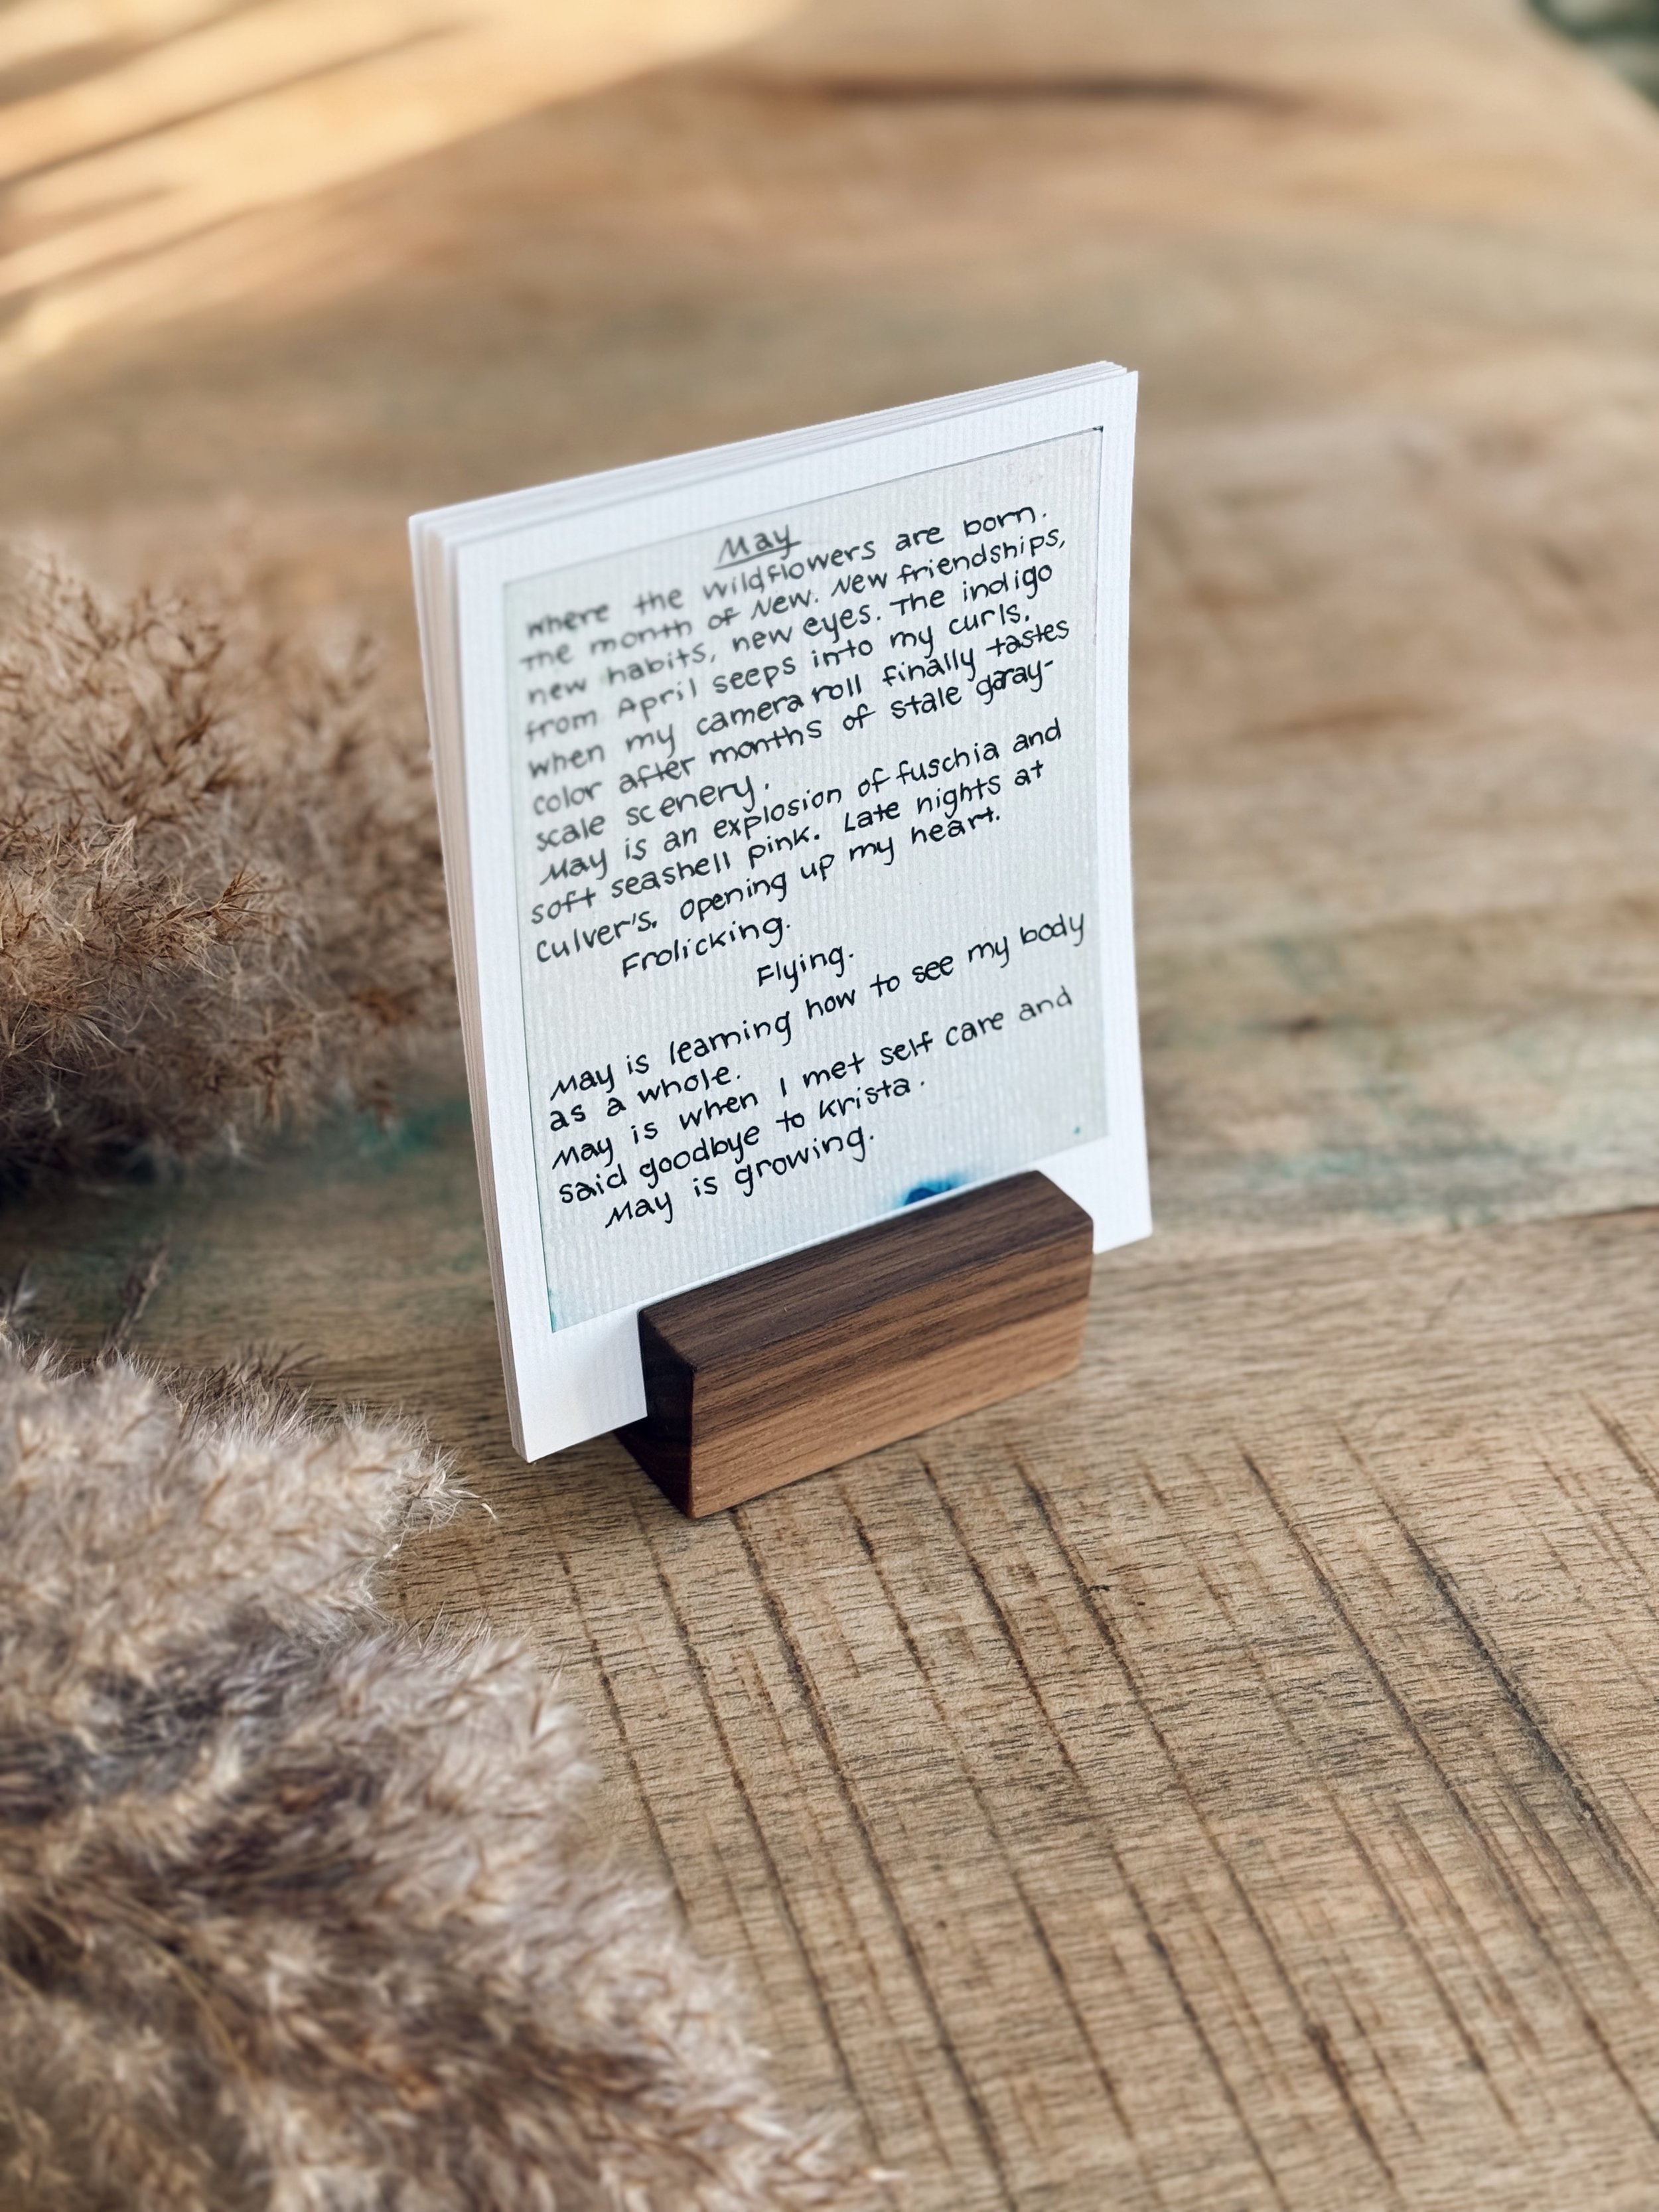 May
where the wildflowers are born.
The month of New. New friendships,
new habits, new eyes. The indigo
from April seeps into my curls.
when my camera roll finally tastes
color after months of stale gray-
scale scenery.
May is an explosion of fuschia and
soft seashell pink. Late nights at
Culver's. Opening up my heart.
Frolicking.
Flying.
May is learning how to see my body
as a whole.
May is when I met self care and
said goodbye to Krista.
May is growing.